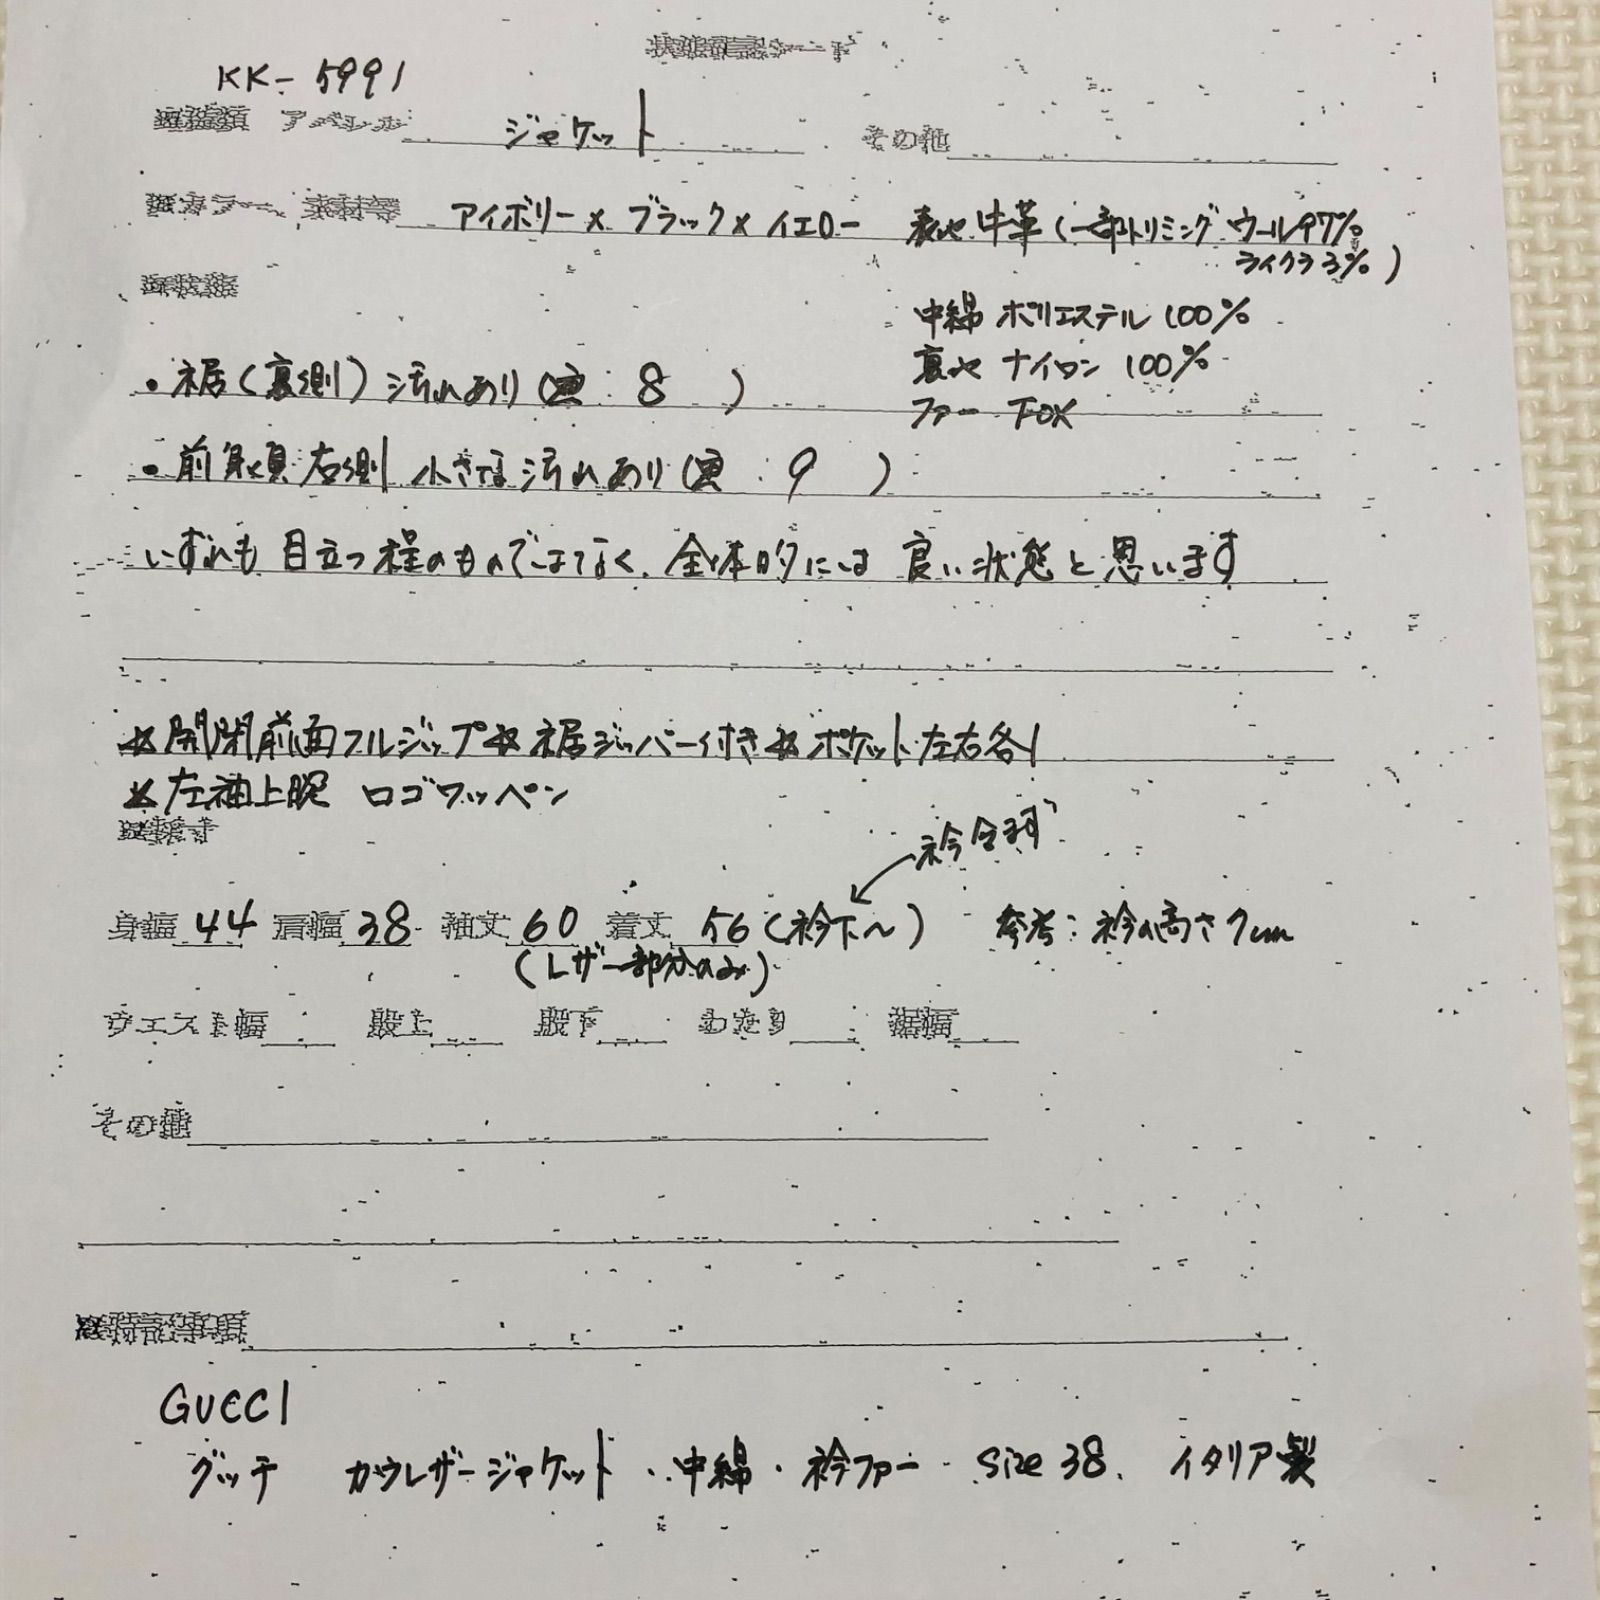 状態確認シート
KK-5991
アパレル ジャケット その他
カラー、素材等 アイボリー×ブラック×イエロー 表地 牛革(一部トリミング ウール97%
ライクラ3%)
状態
中綿 ポリエステル 100%
裏地 ナイロン 100%
ファー FOX
・裾(裏側)汚れあり(画:8)
・前身頃右側 小さな汚れあり(画:9)
いずれも目立つ程のものではなく、全体的には良い状態と思います
☆開閉前面フルジップ☆裾ジッパー付き☆ポケット左右各1
☆左袖上腕 ロゴワッペン
採寸
衿含まず
身幅 44 肩幅 38 袖丈 60 着丈 56(衿下〜) 参考:衿の高さ7cm
(レザー部分のみ)
ウエスト幅 股上 股下 わたり 裾幅
その他
特記事項
GUCCI
グッチ カウレザージャケット・中綿・衿ファー size38. イタリア製